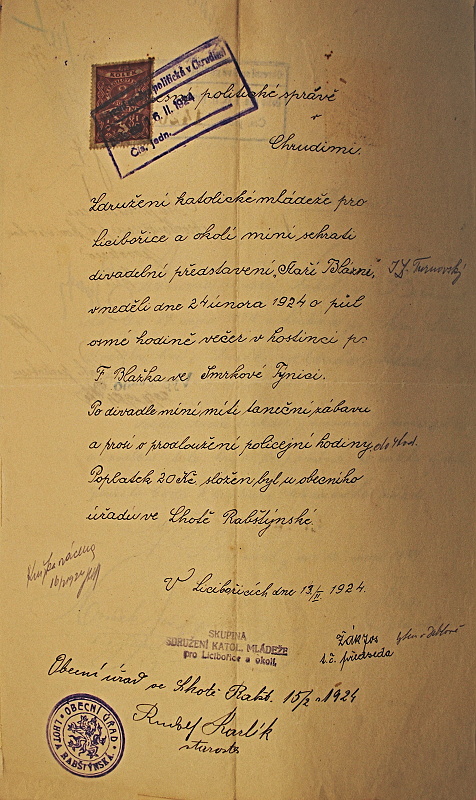 KOLEK
politická v Chrudimi
6. II. 1924
Čís. jedn.
politické správě
v
Chrudimi.
Združení katolické mládeže pro
Licibořice a okolí míní sehrati
divadelní představení „Staří Blázni,"
v neděli dne 24 února 1924 o půl
osmé hodině večer v hostinci p.
F. Blažka ve Smrkové Týnici.
Po divadle míní míti taneční zábavu
a prosí o prodloužení policejní hodiny do 4 hod.
Poplatek 20 Kč, složen byl u obecního
úřadu ve Lhotě Rabštýnské.
V Licibořicích dne 13/II 1924.
SKUPINA
SDRUŽENÍ KATOL. MLÁDEŽE
pro Licibořice a okolí.
t. č. předseda
Obecní úřad ve Lhotě Rabš. 15/2 1924
Rudolf Karlík
starosta
OBECNÍ ÚŘAD
LHOTA RABŠTÝNSKÁ